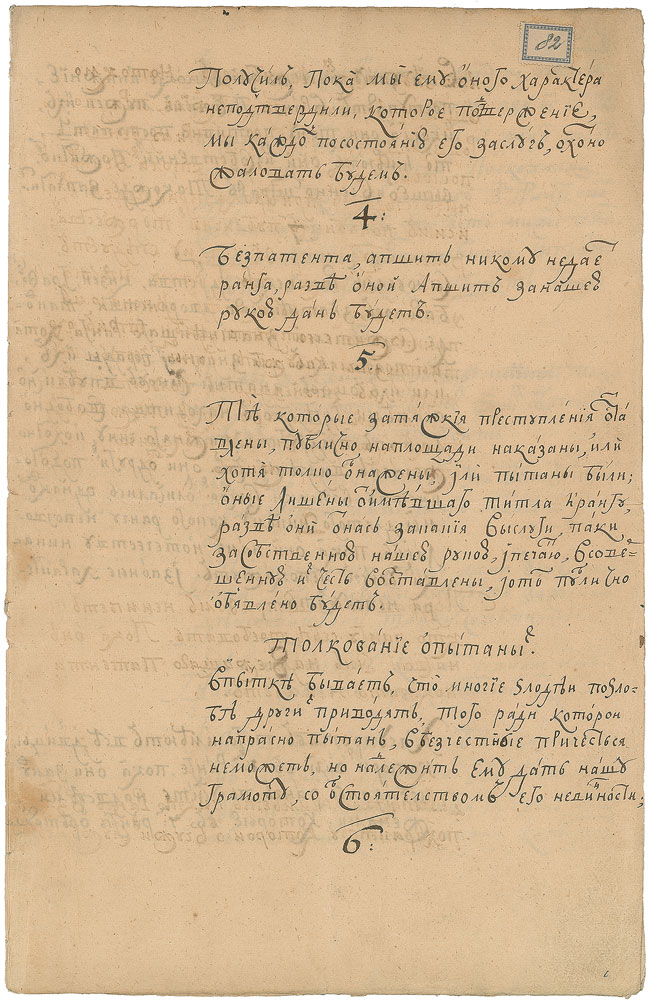 82
Получилъ, Пока мы ему оного характера
неподтвердили, которое потвержение,
мы каждо по состоянию его заслугъ, охоно
жаловать будемъ.
4:
Безпатента, апшитъ никому недае
ранга, развѣ оной Апшитъ занашею
рукою данъ будетъ.
5.
Тѣ которые затяжкия преступления ота
влены, публично, наплощади наказаны, или
хотя толко обнажены, или пытаны были;
оные лишены отимѣвшаго титла и рангу,
развѣ они онасъ за кания выслуги, паки
засобственною нашею рукою, и печатю, всовер
шенную ихъ честь воставлены, и отомъ публично
объявлено будетъ.
Толкование о пытаныхъ.
Впыткѣ бываетъ, что многие злодѣи позло
бѣ другихъ приводятъ, того ради которои
напрасно пытанъ, вбезчестные причестся
неможетъ, но надлежитъ ему дать нашу
грамоту, со обстоятелствомъ его невинности;
6: